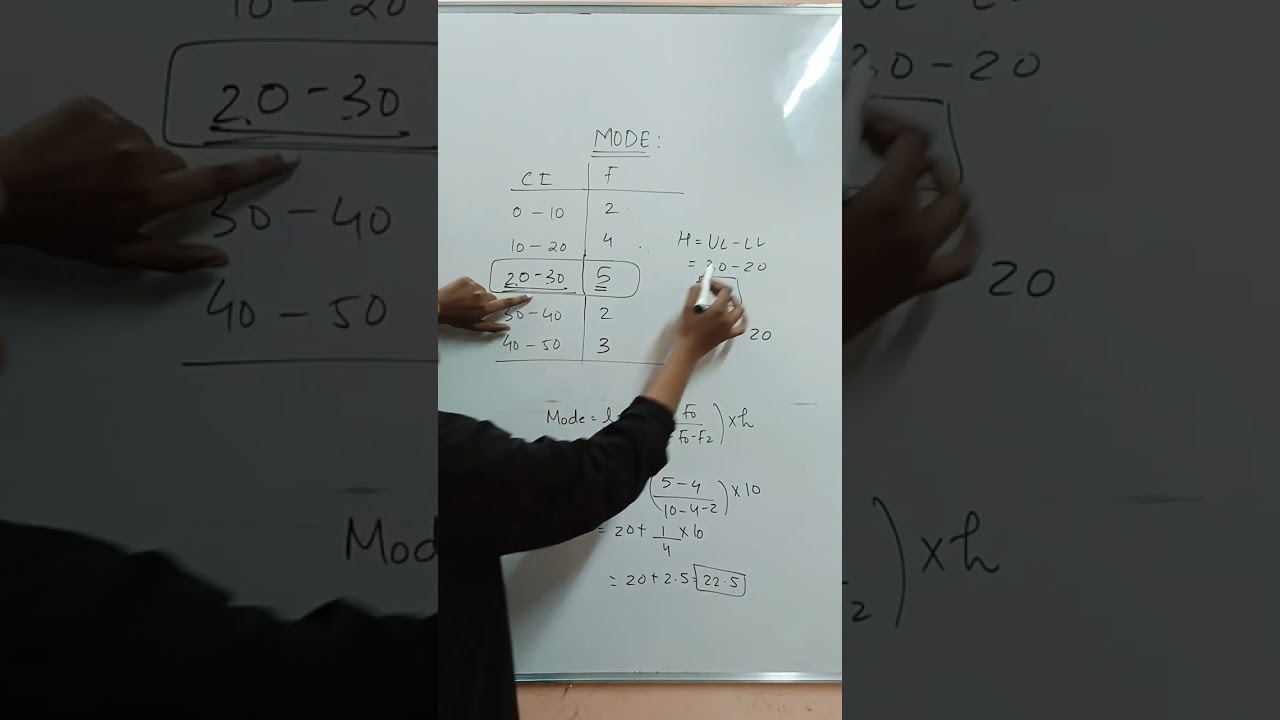 MODE:
CI F
0 - 10 2
10 - 20 4
20 - 30 5
30 - 40 2
40 - 50 3
H = UL - LL
= 30 - 20
20
Mode = l F0 ) x h
- F0 - F2
( 5 - 4 ) x 10
10 - 4 - 2
= 20 + 1 x 10
4
= 20 + 2.5 = 22.5